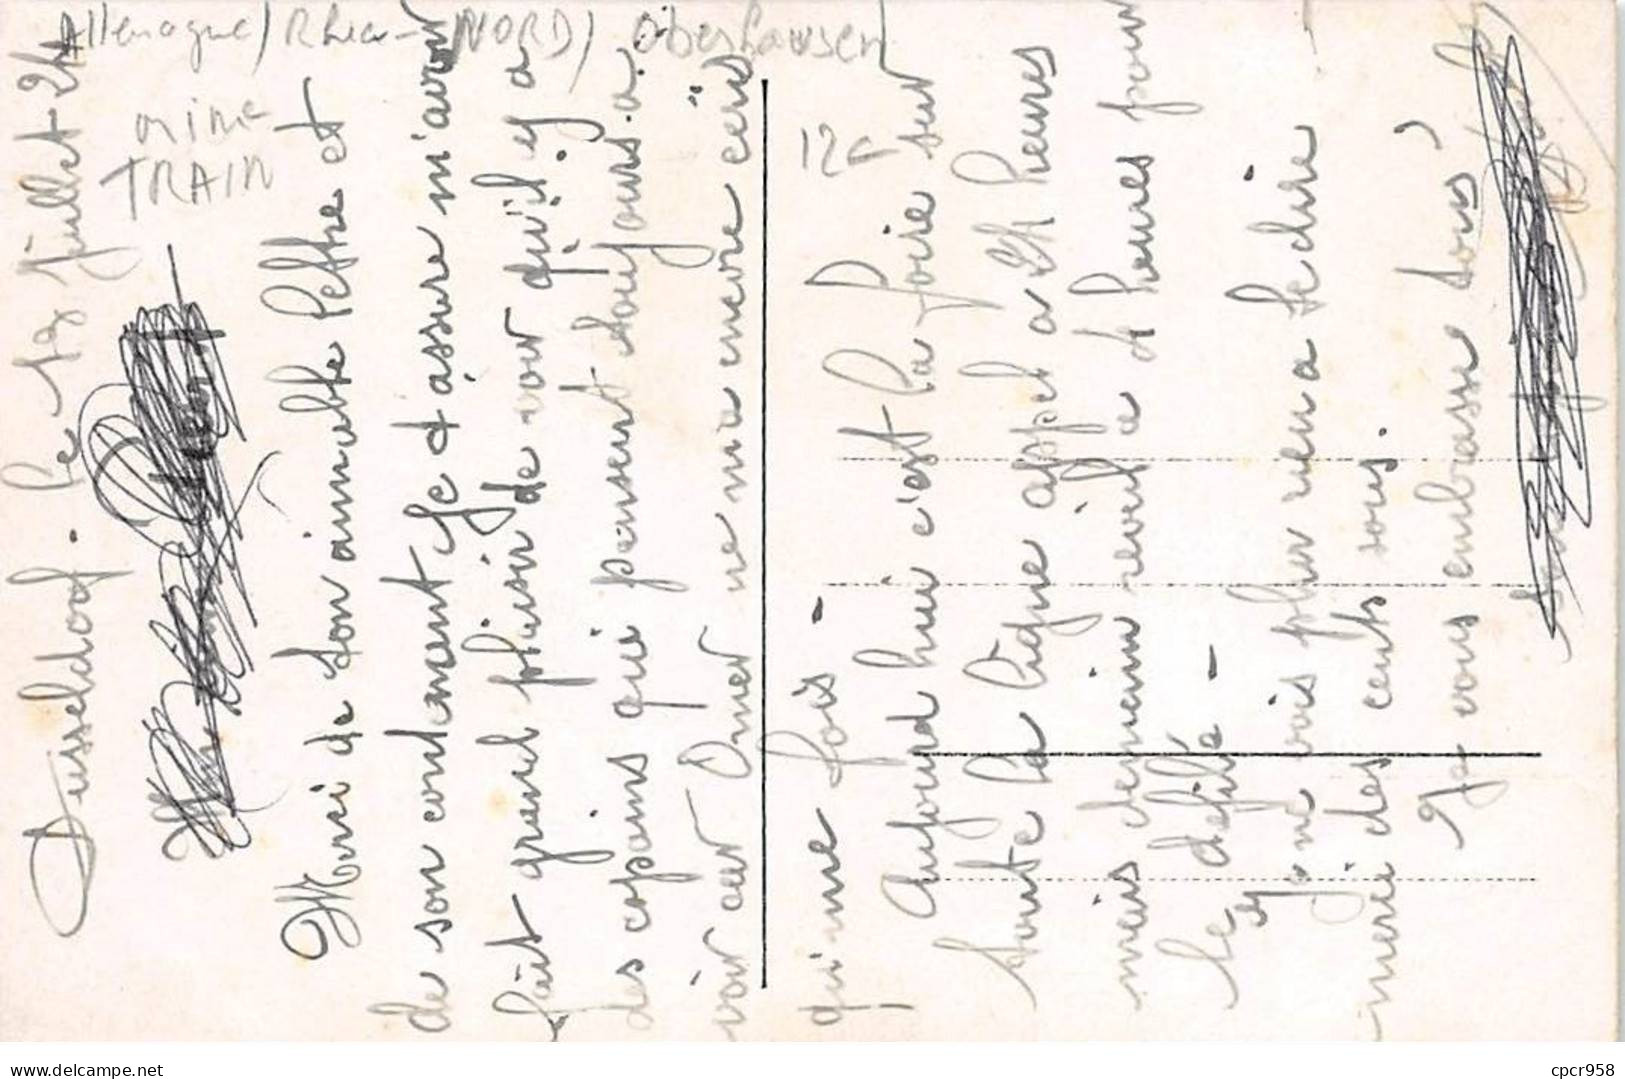 Allemagne / Rhin - NORD / Oberhausen
mine
TRAIN
12F
Dusseldorf. le 13 juillet 24
Merci de ton aimable lettre et
de son contenant je t'assure m'avoir
fait grand plaisir de voir qu'il y a
des copains qui pensent toujours a
voir car Omer ne m'a encore écris
qu'une fois -
Aujourd hui c'est la foire sur
toute la ligne appel a 24 heures
mais demain reveil a 4 heures pour
le défilé -
Je ne vois plus rien a te dire
merci des cents sous.
Je vous embrasse tous
www.delcampe.net
cpcr958